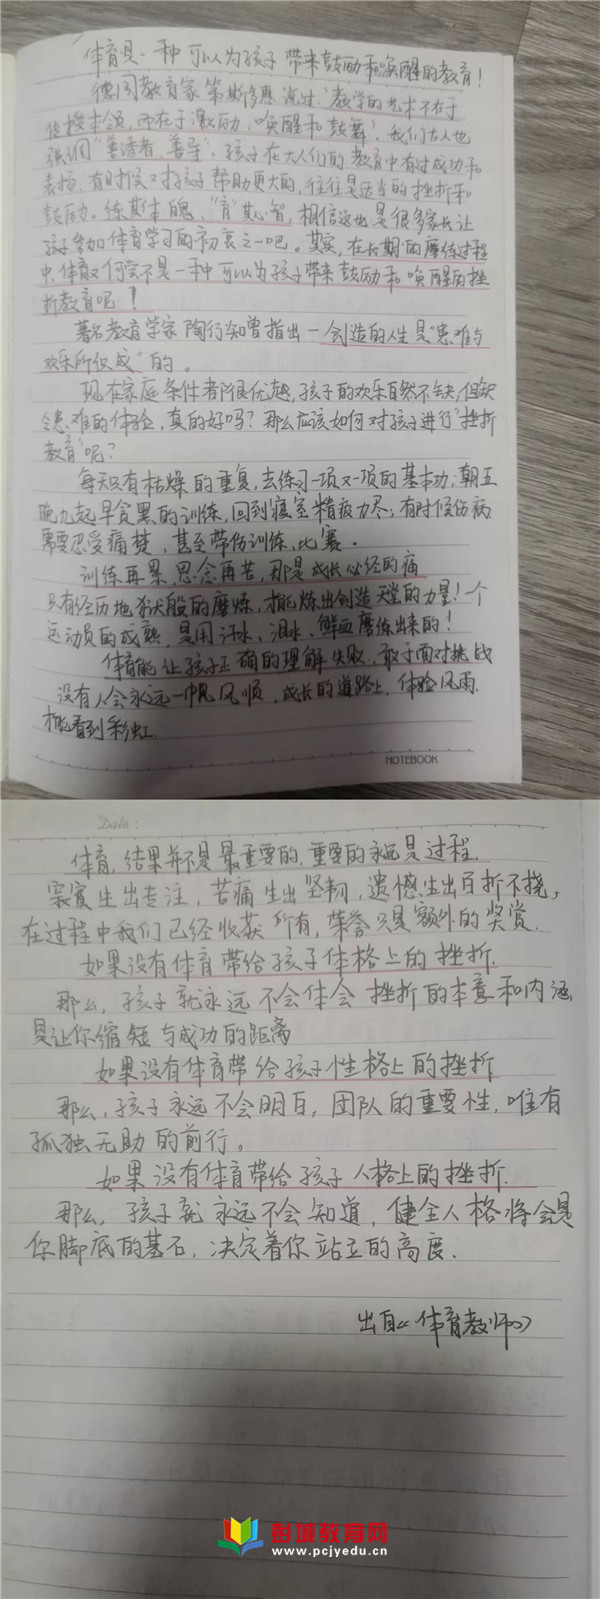 体育是一种可以为孩子带来鼓励和唤醒的教育!
德国教育家第斯多惠说过:"教学的艺术不在于
传授本领,而在于激励、唤醒和鼓舞"。我们古人也
强调"善诱者,善导"。孩子在大人们的教育中有过成功和
表扬,有时候对孩子帮助更大的,往往是适当的挫折和
鼓励。练其体魄,"育"其心智,相信这也是很多家长让
孩子参加体育学习的初衷之一吧。其实,在长期的磨练过程
中,体育又何尝不是一种可以为孩子带来鼓励和唤醒的挫
折教育呢!
著名教育学家陶行知曾指出一创造的人生是"患难与
欢乐所织成"的。
现在家庭条件都很优越,孩子的欢乐自然不缺,但缺
令患难的体验,真的好吗?那么应该如何对孩子进行"挫折
教育"呢?
每天只有枯燥的重复,去练习一项又一项的基本功;朝五
晚九起早贪黑的训练,回到寝室精疲力尽;有时候伤病
需要忍受痛楚,甚至带伤训练、比赛。
训练再累,思念再苦,那是成长必经的痛
只有经历地狱般的磨炼,才能炼出创造天堂的力量!个
运动员的成熟,是用汗水、泪水、鲜血磨练出来的!
体育能让孩子正确的理解失败,敢于面对挑战
没有人会永远一帆风顺,成长的道路上,体验风雨,
才能看到彩虹.
NOTEBOOK
Date:
体育,结果并不是最重要的,重要的永远是过程.
寂寞生出专注,苦痛生出坚韧,遗憾生出百折不挠,
在过程中我们已经收获所有,荣誉只是额外的奖赏.
如果没有体育带给孩子体格上的挫折.
那么,孩子就永远不会体会挫折的本意和内涵,
是让你缩短与成功的距离
如果没有体育带给孩子性格上的挫折
那么,孩子永远不会明白,团队的重要性,唯有
孤独无助的前行。
如果没有体育带给孩子人格上的挫折.
那么,孩子就永远不会知道,健全人格将会是
你脚底的基石,决定着你站立的高度.
出自《体育教师》
彭城教育网
www.pcjyedu.cn